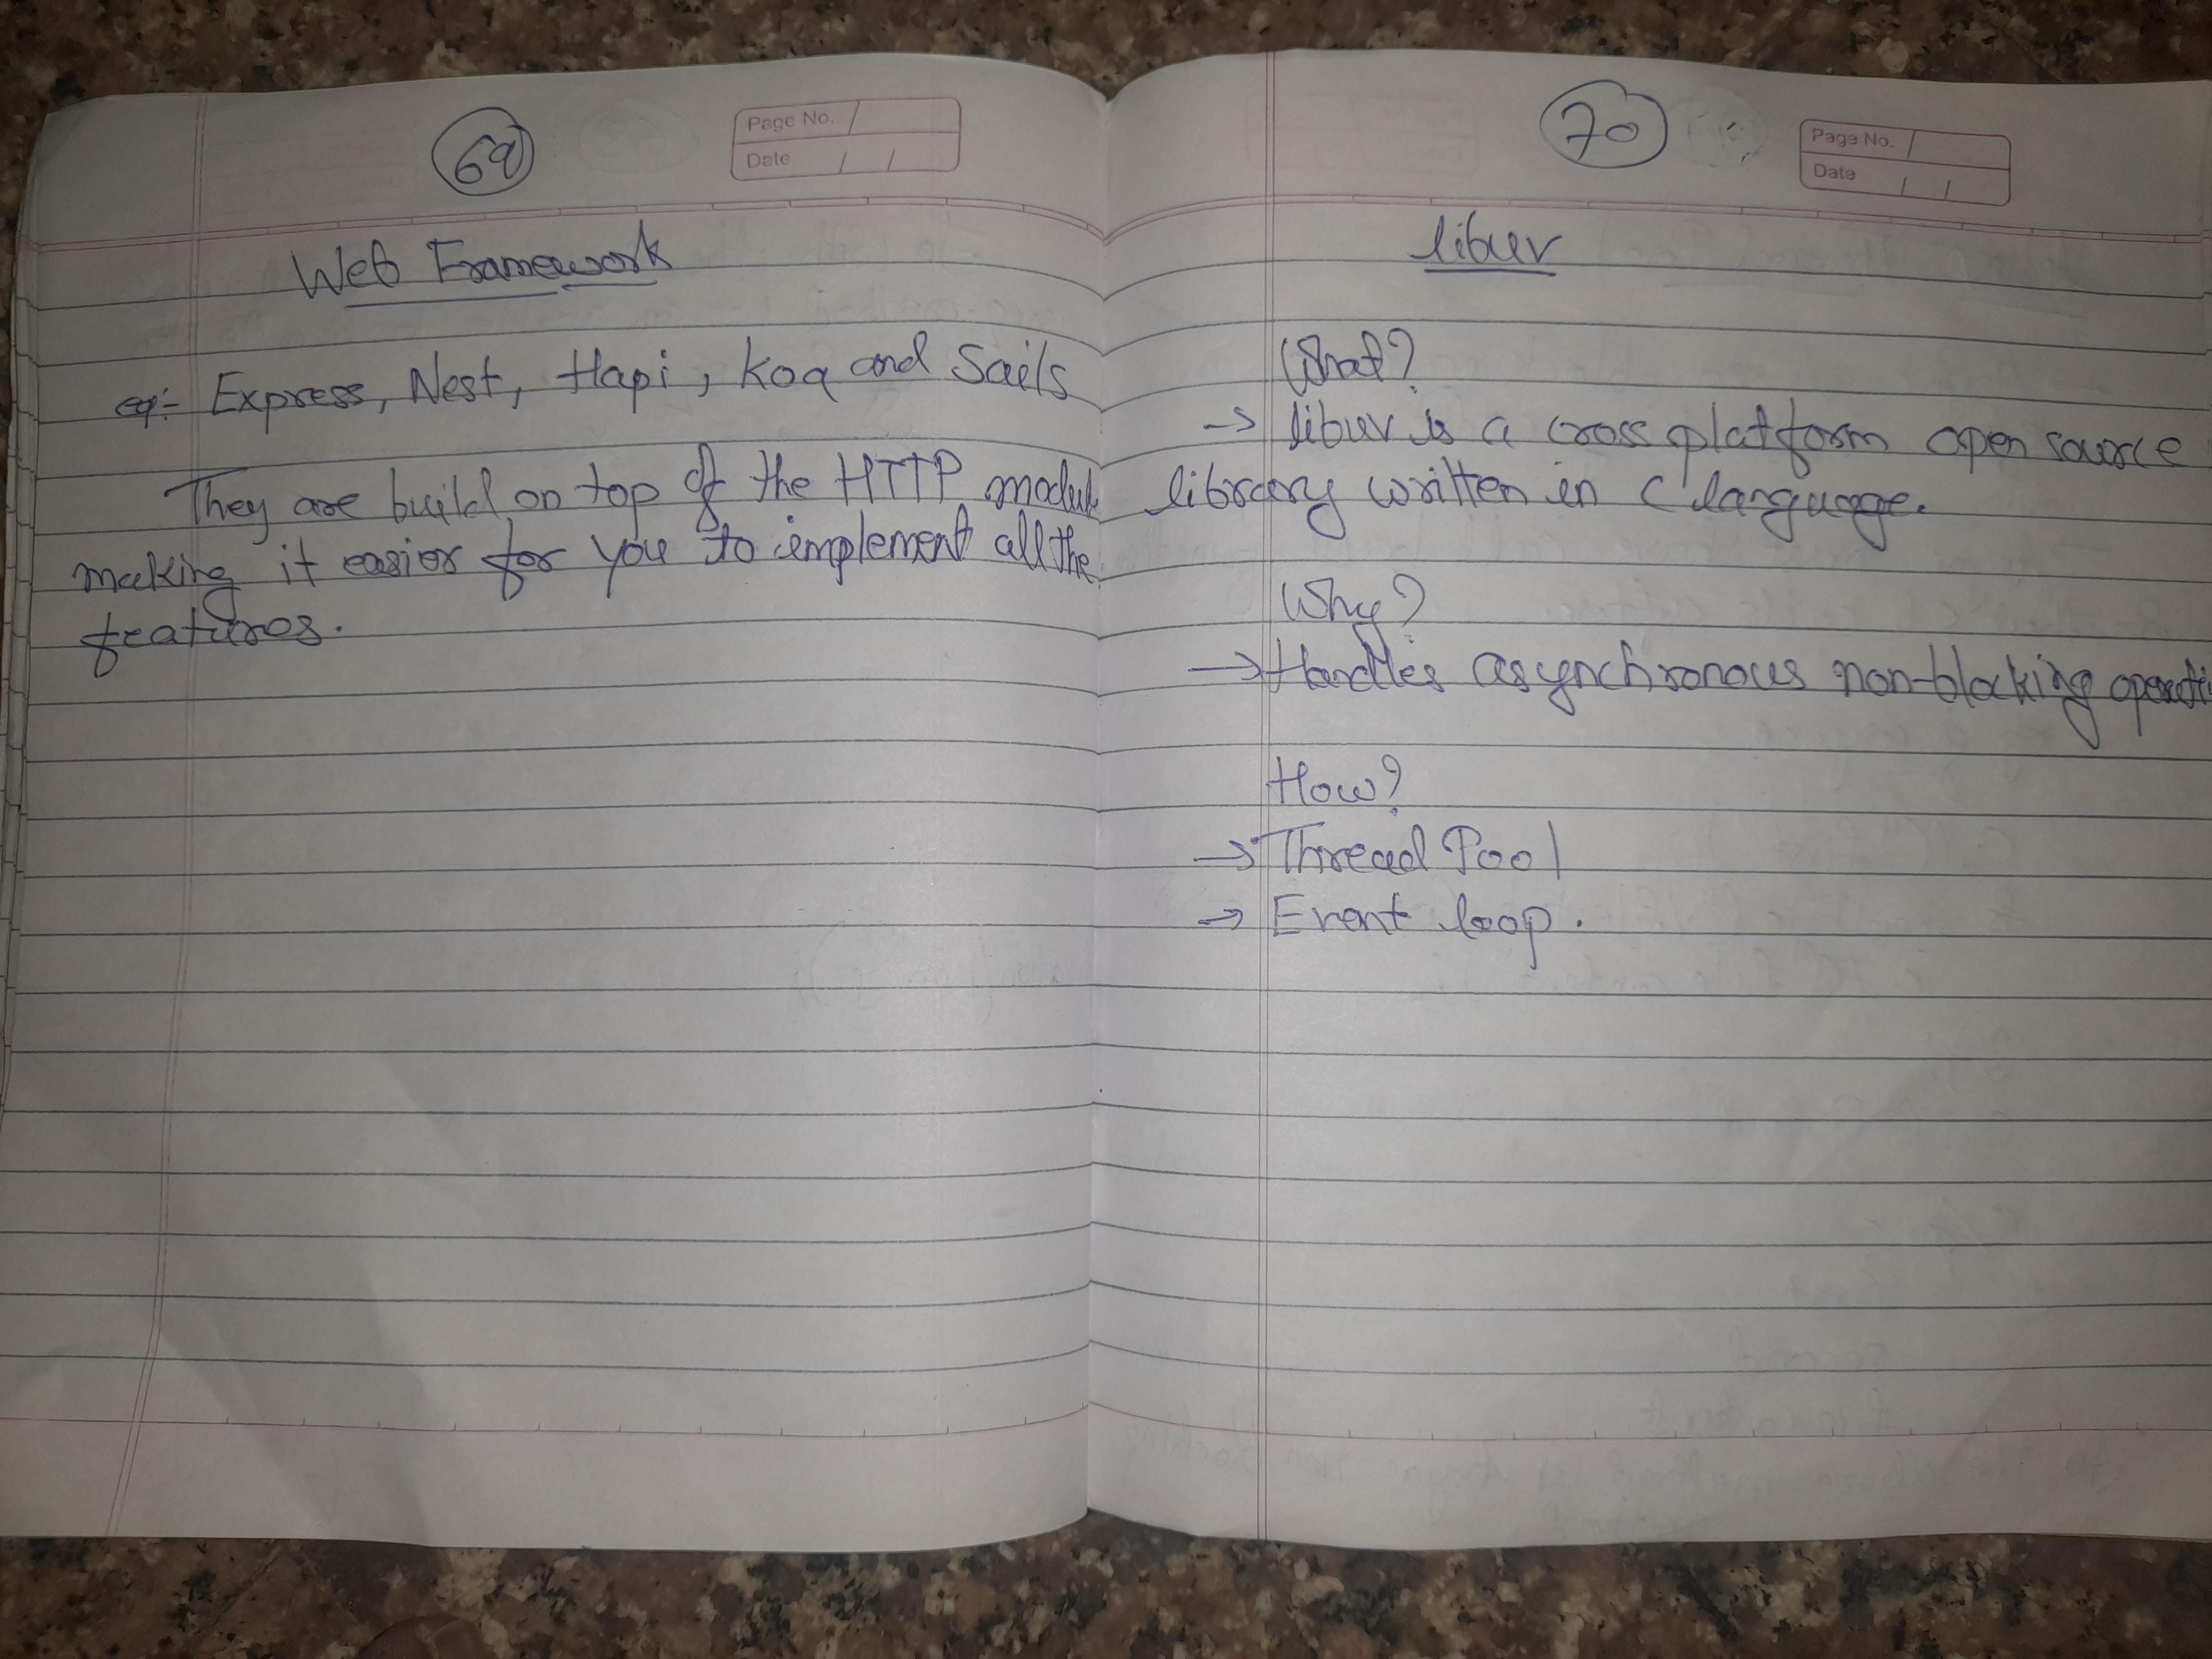 69
Page No.
Date / /
Web Framework
eg:- Express, Nest, Hapi, Koa and Sails
They are build on top of the HTTP module
making it easier for you to implement all the
features.
70
Page No.
Date / /
libuv
What?
→ libuv is a cross platform open source
library written in C language.
Why?
→ Handles asynchronous non-blocking operati
How?
→ Thread Pool
→ Event loop.